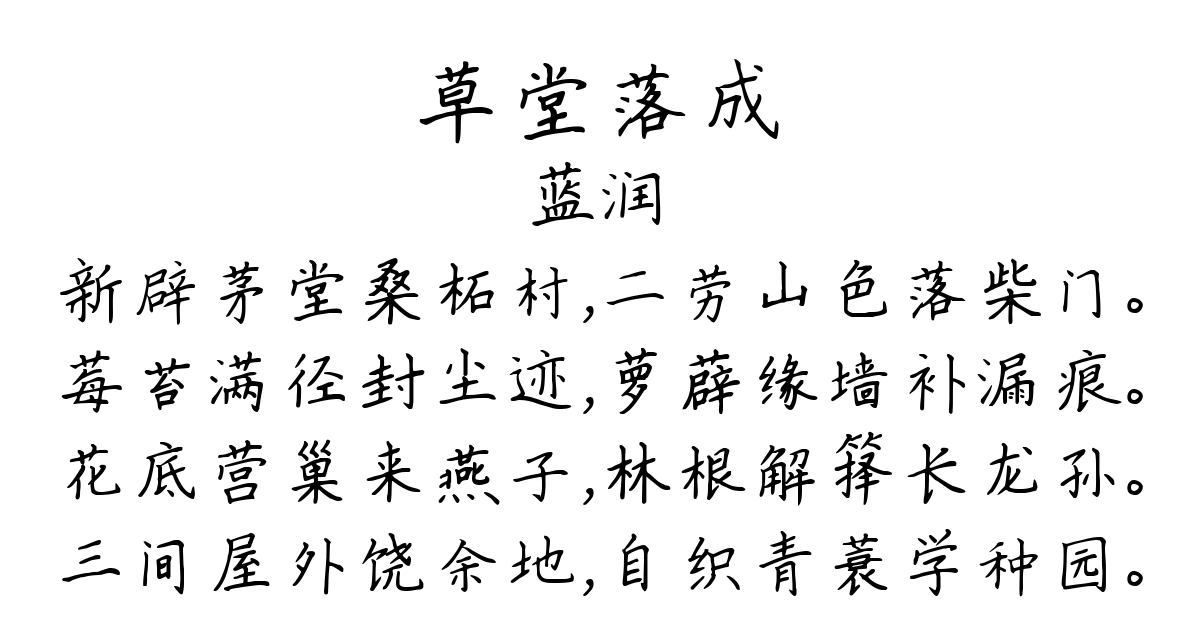 草堂落成
蓝润
新辟茅堂桑柘村,二劳山色落柴门。
莓苔满径封尘迹,萝薜缘墙补漏痕。
花底营巢来燕子,林根解箨长龙孙。
三间屋外饶余地,自织青蓑学种园。